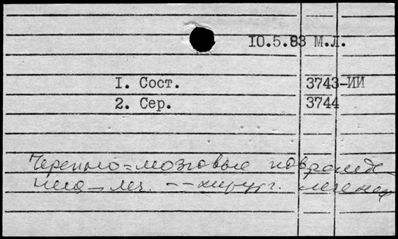 10.5.83 М.Л.
1. Сост. 3743-ИИ
2. Сер. 3744
Черепно-мозговые поврежде-
ния - леч. -- хирург. лечение